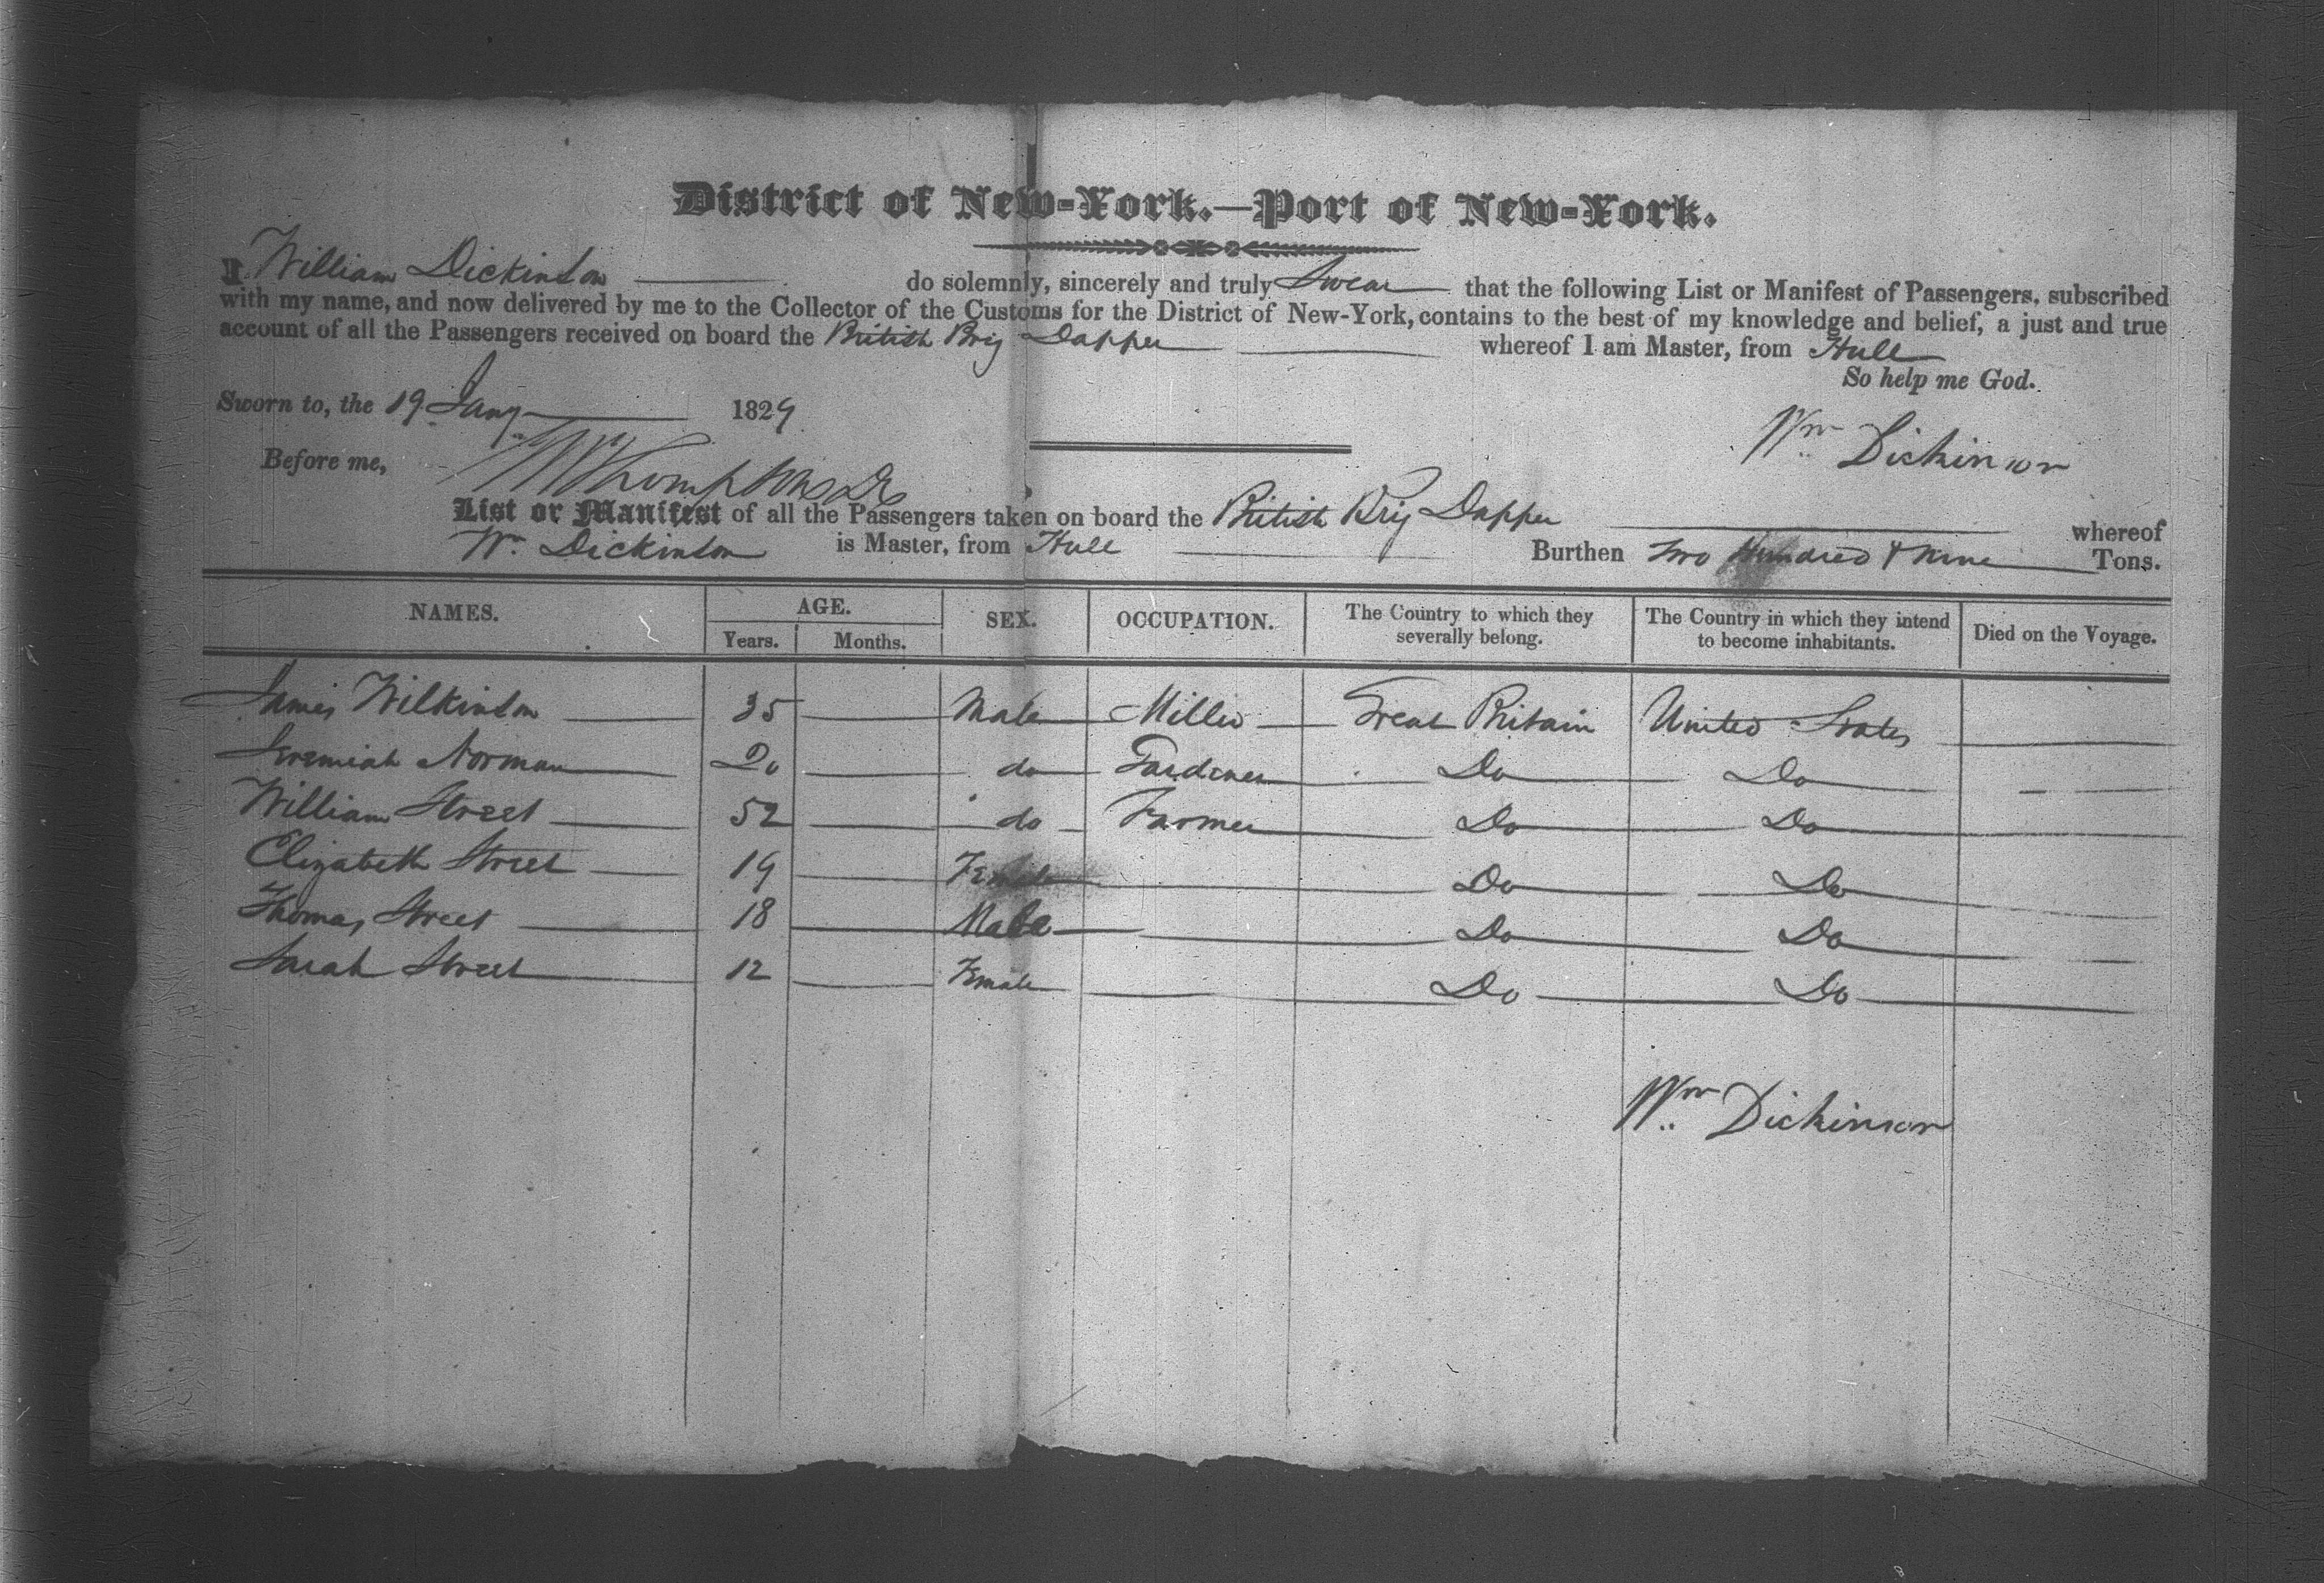 District of New-York.—Port of New-York.
I William Dickinson do solemnly, sincerely and truly Swear that the following List or Manifest of Passengers, subscribed
with my name, and now delivered by me to the Collector of the Customs for the District of New-York, contains to the best of my knowledge and belief, a just and true
account of all the Passengers received on board the British Brig Dapper whereof I am Master, from Hull
So help me God.
Sworn to, the 19 Jany 1829
Wm Dickinson
Before me,
List or Manifest of all the Passengers taken on board the British Brig Dapper whereof
Wm Dickinson is Master, from Hull Burthen Two Hundred & Nine Tons.
NAMES. AGE. SEX. OCCUPATION. The Country to which they severally belong. The Country in which they intend to become inhabitants. Died on the Voyage.
Years. Months.
James Wilkinson 35 Male Miller Great Britain United States
Jeremiah Norman 20 do Gardener Do Do
William Street 52 do Farmer Do Do
Elizabeth Street 19 Female Do Do
Thomas Street 18 Male Do Do
Sarah Street 12 Female Do Do
Wm Dickinson